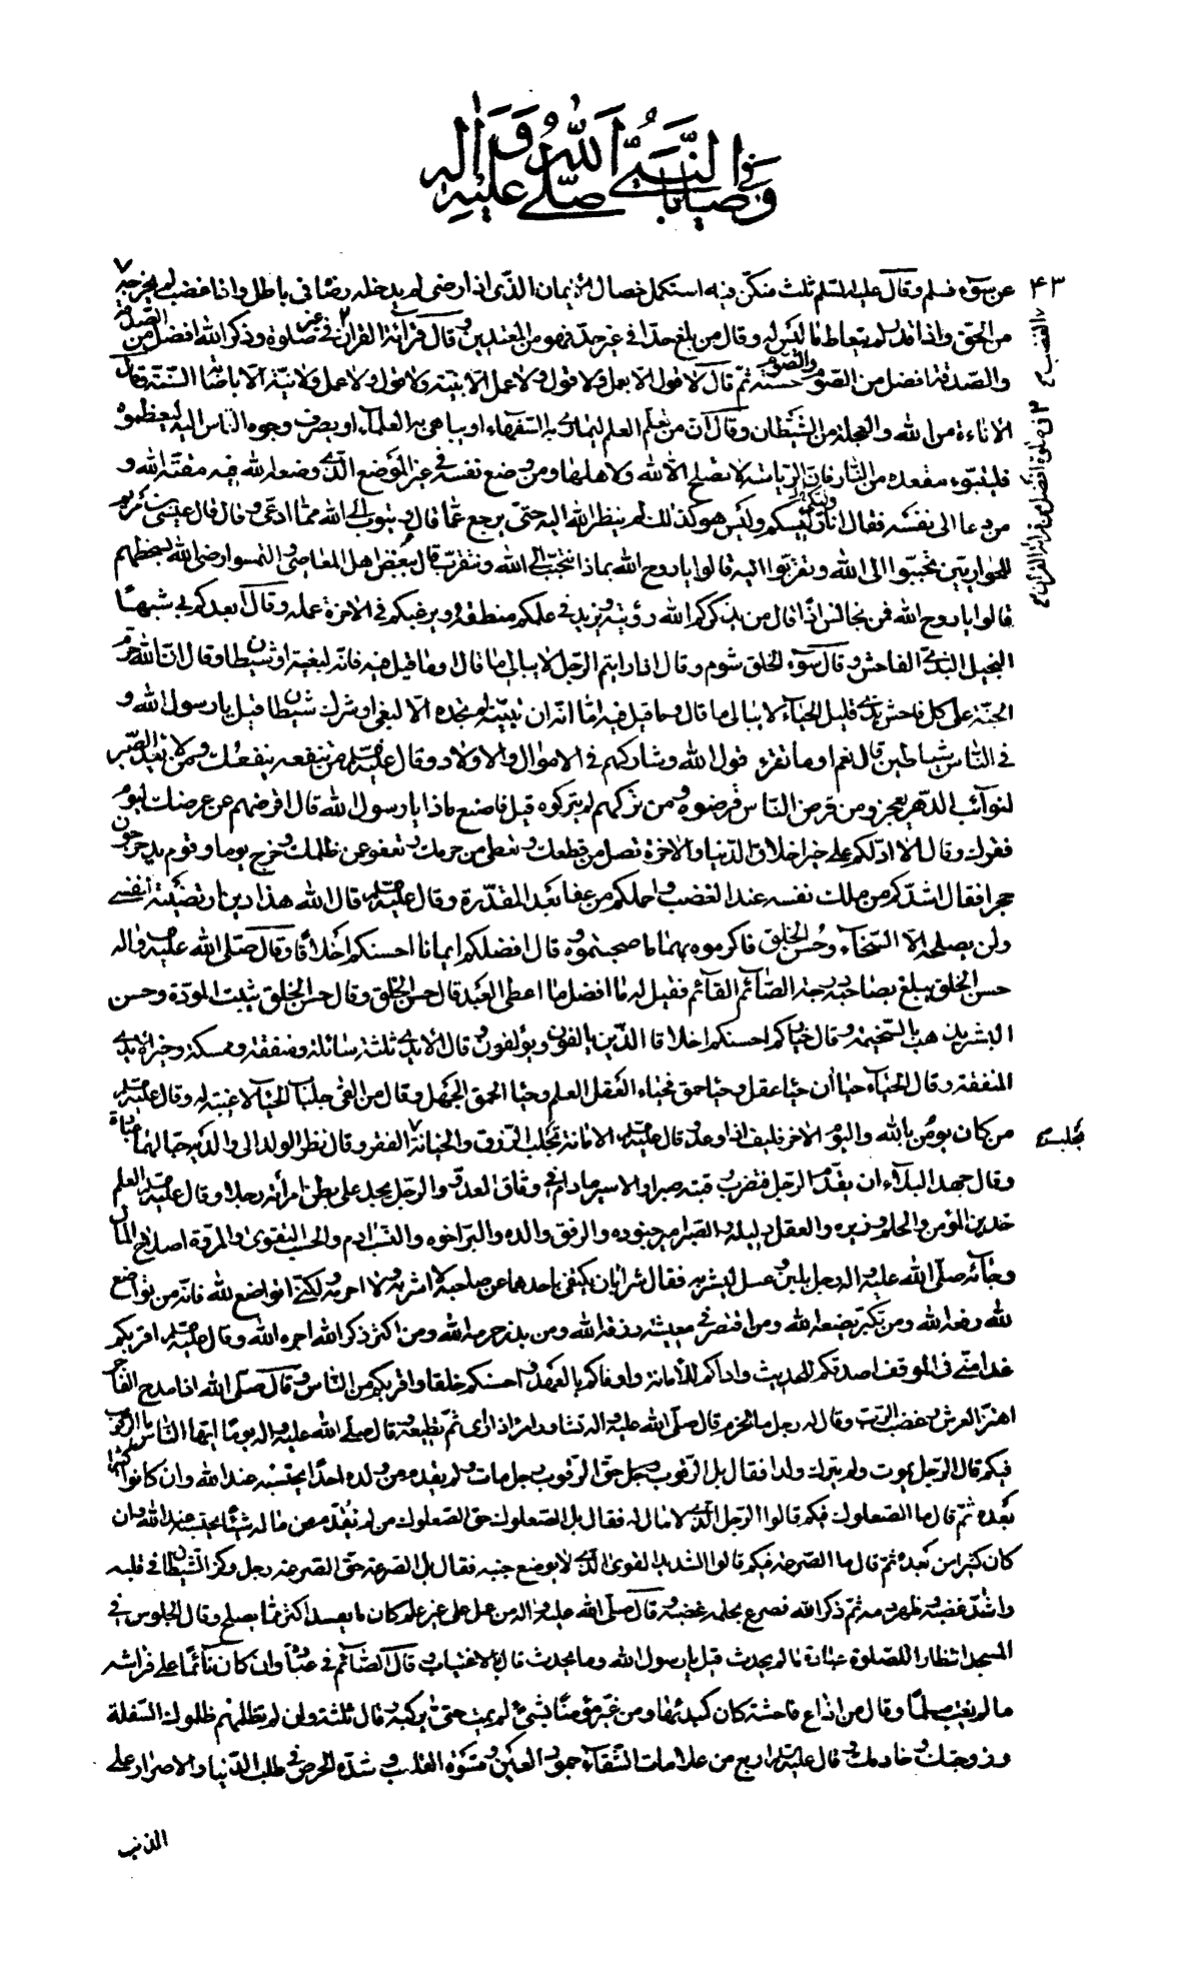 في وصايا النبي صلى الله عليه وآله
٤٣
عن سوء فسلم وقال عليه السلم ثلث من كن فيه استكمل خصال الايمان الذى اذا رضى لم يدخله رضاه فى باطل واذا غضب لم يخرجه
من الحق واذا قدر لم يتعاط ما ليس له وقال من بلغ حدا فى غير حد فهو من المعتدين وقال قرائة القران فى غير صلوة وذكر الله افضل من الصدقة
والصدقة افضل من الصوم والصوم حسنة ثم قال لا قول الا بعمل ولا قول ولا عمل الا بنية ولا قول ولا عمل ولا نية الا باصابة السنة وقال
الاناءة من الله والعجلة من الشيطان وقال ان من تعلم العلم ليمارى به السفهاء او يباهى به العلماء او يصرف وجوه الناس اليه ليعظموه
فليتبوء مقعده من النار فان الرياسة لا تصلح الا لله ولاهلها ومن وضع نفسه فى غير الموضع الذى وضعه الله فيه مقته الله و
من دعا الى نفسه فقال انا رئيسكم وليس هو كذلك لم ينظر الله اليه حتى يرجع عما قال ويتوب الى الله مما ادعى وقال قال عيسى بن مريم
للحواريين تحببوا الى الله وتقربوا اليه قالوا يا روح الله بماذا نتحبب الى الله ونتقرب قال ببغض اهل المعاصى والتمسوا رضى الله بسخطهم
قالوا يا روح الله فمن نجالس اذا قال من يذكركم الله رؤيته ويزيد فى علمكم منطقه ويرغبكم فى الاخرة عمله وقال ابعدكم بى شبها
البخيل البذى الفاحش وقال سوء الخلق شوم وقال اذا رايتم الرجل لا يبالى ما قال وما قيل فيه فانه لبغية او شيطان وقال ان الله حرم
الجنة على كل فاحش بذى قليل الحياء لا يبالى ما قال وما قيل فيه اما انه ان تنسبه لم تجده الا لبغى او شرك شيطان قيل يا رسول الله و
فى الناس شياطين قال نعم او ما تقرء قول الله وشاركهم فى الاموال والاولاد وقال من تنفعه ينفعك ومن لا يعد الصبر
لنوآئب الدهر يعجز ومن قرض الناس قرضوه ومن تركهم لم يتركوه قيل فاصنع ماذا يا رسول الله قال اقرضهم من عرضك ليوم
فقرك وقال الا ادلكم على خير اخلاق الدنيا والاخرة تصل من قطعك وتعطى من حرمك وتعفو عن ظلمك وخرج يوما وقوم يدحرجون
حجرا فقال اشدكم من ملك نفسه عند الغضب واحلمكم من عفا بعد المقدرة وقال قال الله هذا دين ارتضيته لنفسى
ولن يصلحه الا السخاء وحسن الخلق فاكرموه بهما ما صحبتموه قال افضلكم ايمانا احسنكم اخلاقا وقال صلى الله عليه واله
حسن الخلق يبلغ بصاحبه درجة الصائم القائم فقيل له ما افضل ما اعطى العبد قال حسن الخلق وقال حسن الخلق يثبت المودة وحسن
البشر يذهب بالسخيمة وقال خياركم احسنكم اخلاقا الذين يالفون ويؤلفون وقال الايدى ثلثة سائلة ومنفقة وممسكة وخير الايدى
المنفقة وقال الحياء حياآن حياء عقل وحياء حمق فحياء العقل العلم وحياء الحمق الجهل وقال من القى جلباب الحياء لا غيبة له وقال
من كان يؤمن بالله واليوم الاخر فليف اذا وعد وقال الامانة تجلب الرزق والخيانة الفقر وقال نظر الولد الى والديه حبا لهما عبادة
وقال جهد البلاء ان يقدم الرجل فتضرب رقبته صبرا والاسير مادام فى وثاق العدو والرجل يجد على بطن امراته رجلا وقال العلم
خدين المؤمن والحلم وزيره والعقل دليله والصبر امير جنوده والرفق والده والبر اخوه والنسب ادم والحسب التقوى والمروة اصلاح المال
وجائه صلى الله عليه واله رجل بلبن وعسل ليشربه فقال شرابان يكتفى باحدهما عن صاحبه لا اشربه ولا احرمه ولكنى اتواضع لله فانه من تواضع
لله رفعه الله ومن تكبر يضعه الله ومن اقتصر فى معيشته رزقه الله ومن بذر حرمه الله ومن اكثر ذكر الله اجره الله وقال اقربكم
غدا منى فى الموقف اصدقكم للحديث واداكم للامانة واوفاكم بالعهد واحسنكم خلقا واقربكم من الناس وقال صلى الله اذا مدح الفاجر
اهتز العرش وغضب الرب وقال له رجل ما الحزم قال صلى الله عليه واله تشاور امرا ذا راى ثم تطيعه وقال صلى الله عليه واله يوما ايها الناس ما الرقوب
فيكم قال الرجل يموت ولم يترك ولدا فقال بل الرقوب حق الرقوب رجل مات ولم يقدم من ولده احدا يحتسبه عند الله وان كانوا كثيرا
بعده ثم قال ما الصعلوك فيكم قالوا الرجل الذى لا مال له فقال بل الصعلوك حق الصعلوك من لم يقدم من ماله شيئا يحتسبه عند الله وان
كان كثيرا من بعده ثم قال ما الصرعة فيكم قالوا الشديد القوى الذى لا يوضع جنبه فقال بل الصرعة حق الصرعة رجل وكز الشيطان فى قلبه
واشتد غضبه وظهر دمه ثم ذكر الله فصرع بحلمه غضبه وقال صلى الله عليه واله من عمل على غير علم كان ما يفسد اكثر مما يصلح وقال الجلوس فى
المسجد انتظارا للصلوة عبادة ما لم يحدث قيل يا رسول الله وما يحدث قال الاغتياب وقال الصائم فى عبادة وان كان نائما على فراشه
ما لم يغتب مسلما وقال من اذاع فاحشة كان كمبدئها ومن عير مؤمنا بشىء لم يمت حتى يركبه وقال ثلثة وان لم تظلمهم ظلموك السفلة
وزوجتك وخادمك وقال اربع من علامات الشقاء جمود العين وقسوة القلب وشدة الحرص فى طلب الدنيا والاصرار على
الذنب
الغضب
تجلب